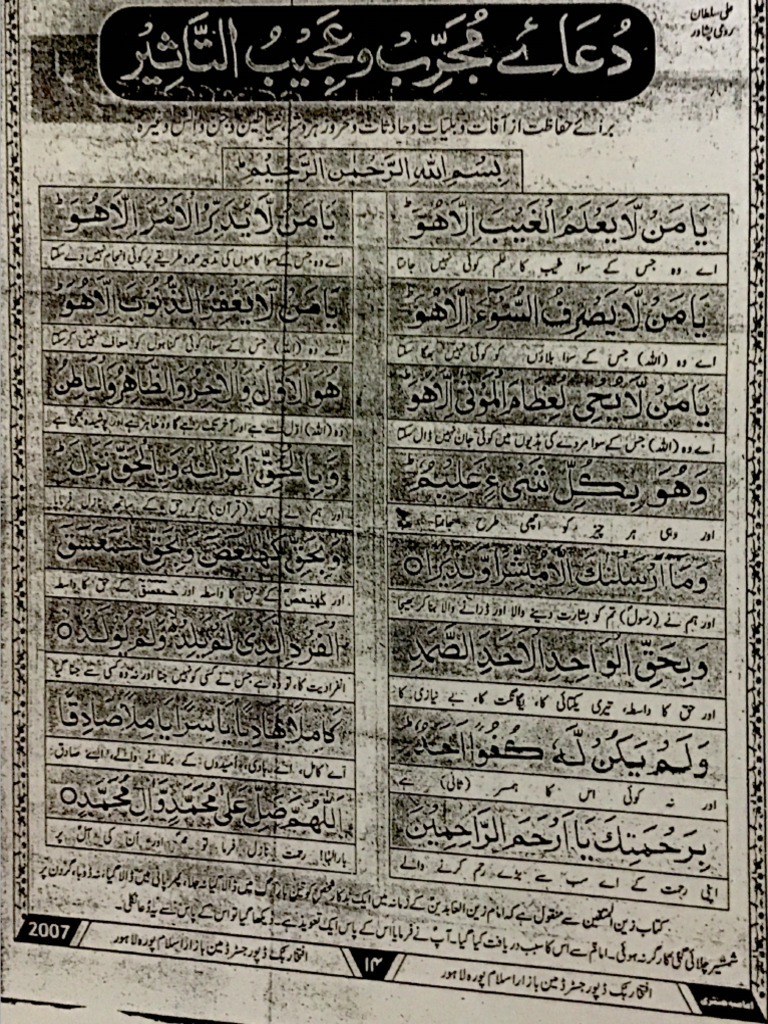 علی سلطان
روی پشاور
دُعَائے مُجَرِّبُ وعَجِیْبُ التَّاثِیْر
برائے حفاظت از آفات و بلیات و حادثات و ضرر ہر دشمن شیاطین و جن و انس وغیرہ
بِسْمِ اللهِ الرَّحْمٰنِ الرَّحِیْمِ
یَا مَنْ لَّا یَعْلَمُ الْغَیْبَ اِلَّا هُوَ
اے وہ جس کے سوا غیب کا علم کوئی نہیں جانتا
یَا مَنْ لَّا یُدَبِّرُ الْاَمْرَ اِلَّا هُوَ
اے وہ جس کے سوا کاموں کی تدبیر عمدہ طریقے پر کوئی انجام نہیں دے سکتا
یَا مَنْ لَّا یَصْرِفُ السُّوْٓءَ اِلَّا هُوَ
اے وہ (اللہ) جس کے سوا بلاؤں کو کوئی نہیں بھگا سکتا
یَا مَنْ لَّا یَغْفِرُ الذُّنُوْبَ اِلَّا هُوَ
اے وہ (اللہ) جس کے سوا کوئی گناہوں کو معاف نہیں کر سکتا
یَا مَنْ لَّا یُحْیِ لِعِظَامِ الْمَوْتٰی اِلَّا هُوَ
اے وہ (اللہ) جس کے سوا مردے کی ہڈیوں میں کوئی جان نہیں ڈال سکتا
هُوَ الْاَوَّلُ وَالْاٰخِرُ وَالظَّاهِرُ وَالْبَاطِنُ
وہ (اللہ) اوّل سے ہے اور آخر تک رہے گا وہ ظاہر ہے اور پوشیدہ بھی ہے
وَهُوَ بِكُلِّ شَیْءٍ عَلِیْمٌ
اور وہی ہر چیز کو اچھی طرح جانتا ہے
وَبِالْحَقِّ اَنْزَلْنٰهُ وَبِالْحَقِّ نَزَلَ
اور ہم نے اس (قرآن) کو حق کے ساتھ نازل
وَمَا اَرْسَلْنٰكَ اِلَّا مُبَشِّرًا وَّنَذِیْرًا
اور ہم نے (رسول) تم کو بشارت دینے والا اور ڈرانے والا بنا کر بھیجا
وَبِحَقِّ كٓهٰیٰعٓصٓ وَبِحَقِّ حٰمٓعٓسٓقٓ
اور کٓهٰیٰعٓصٓ کے حق کا واسطہ اور حٰمٓعٓسٓقٓ کے حق کا واسطہ
وَبِحَقِّ الْوَاحِدِ الْاَحَدِ الصَّمَدِ
اور حق کا واسطہ، تیری یکتائی کا، یگانگت کا، بے نیازی کا
الْفَرْدِ الَّذِیْ لَمْ یَلِدْ وَلَمْ یُوْلَدْ
انفرادیت کا، تو وہ ہے جس نے کسی کو نہیں جنا اور نہ وہ کسی سے جنا گیا
وَلَمْ یَكُنْ لَّهٗ كُفُوًا اَحَدٌ
اور نہ کوئی اس کا ہمسر (ثانی) ہے
كَامِلًا هَادِیًا یَا سِرًّا یَا مِلًا صَادِقًا
اے کامل، اے ہادی، اُمیدوں کے بر لانے والے، اے صادق
بِرَحْمَتِكَ یَا اَرْحَمَ الرَّاحِمِیْنَ
اپنی رحمت کے اے سب سے بڑے رحم کرنے والے
اَللّٰهُمَّ صَلِّ عَلٰی مُحَمَّدٍ وَّاٰلِ مُحَمَّدٍ
بارالہا! رحمت نازل فرما تو محمدؐ اور اُن کی آل پر
کتاب زین المتقین سے منقول ہے کہ امام زین العابدین کے زمانہ میں ایک بدکار شخص کو تین بار آگ میں ڈالا گیا نہ جلا، پھر پانی میں ڈالا گیا، نہ ڈوبا، گردن پر
شمشیر چلائی گئی کارگر نہ ہوئی۔ امامؑ سے اس کا سبب دریافت کیا گیا۔ آپ نے فرمایا اس کے پاس ایک تعویذ ہے۔ دیکھا گیا تو اس کے پاس سے یہ دعا نکلی۔
افتخار بک ڈپو رجسٹرڈ مین بازار اسلام پورہ لاہور
۱۴
افتخار بک ڈپو رجسٹرڈ مین بازار اسلام پورہ لاہور
2007